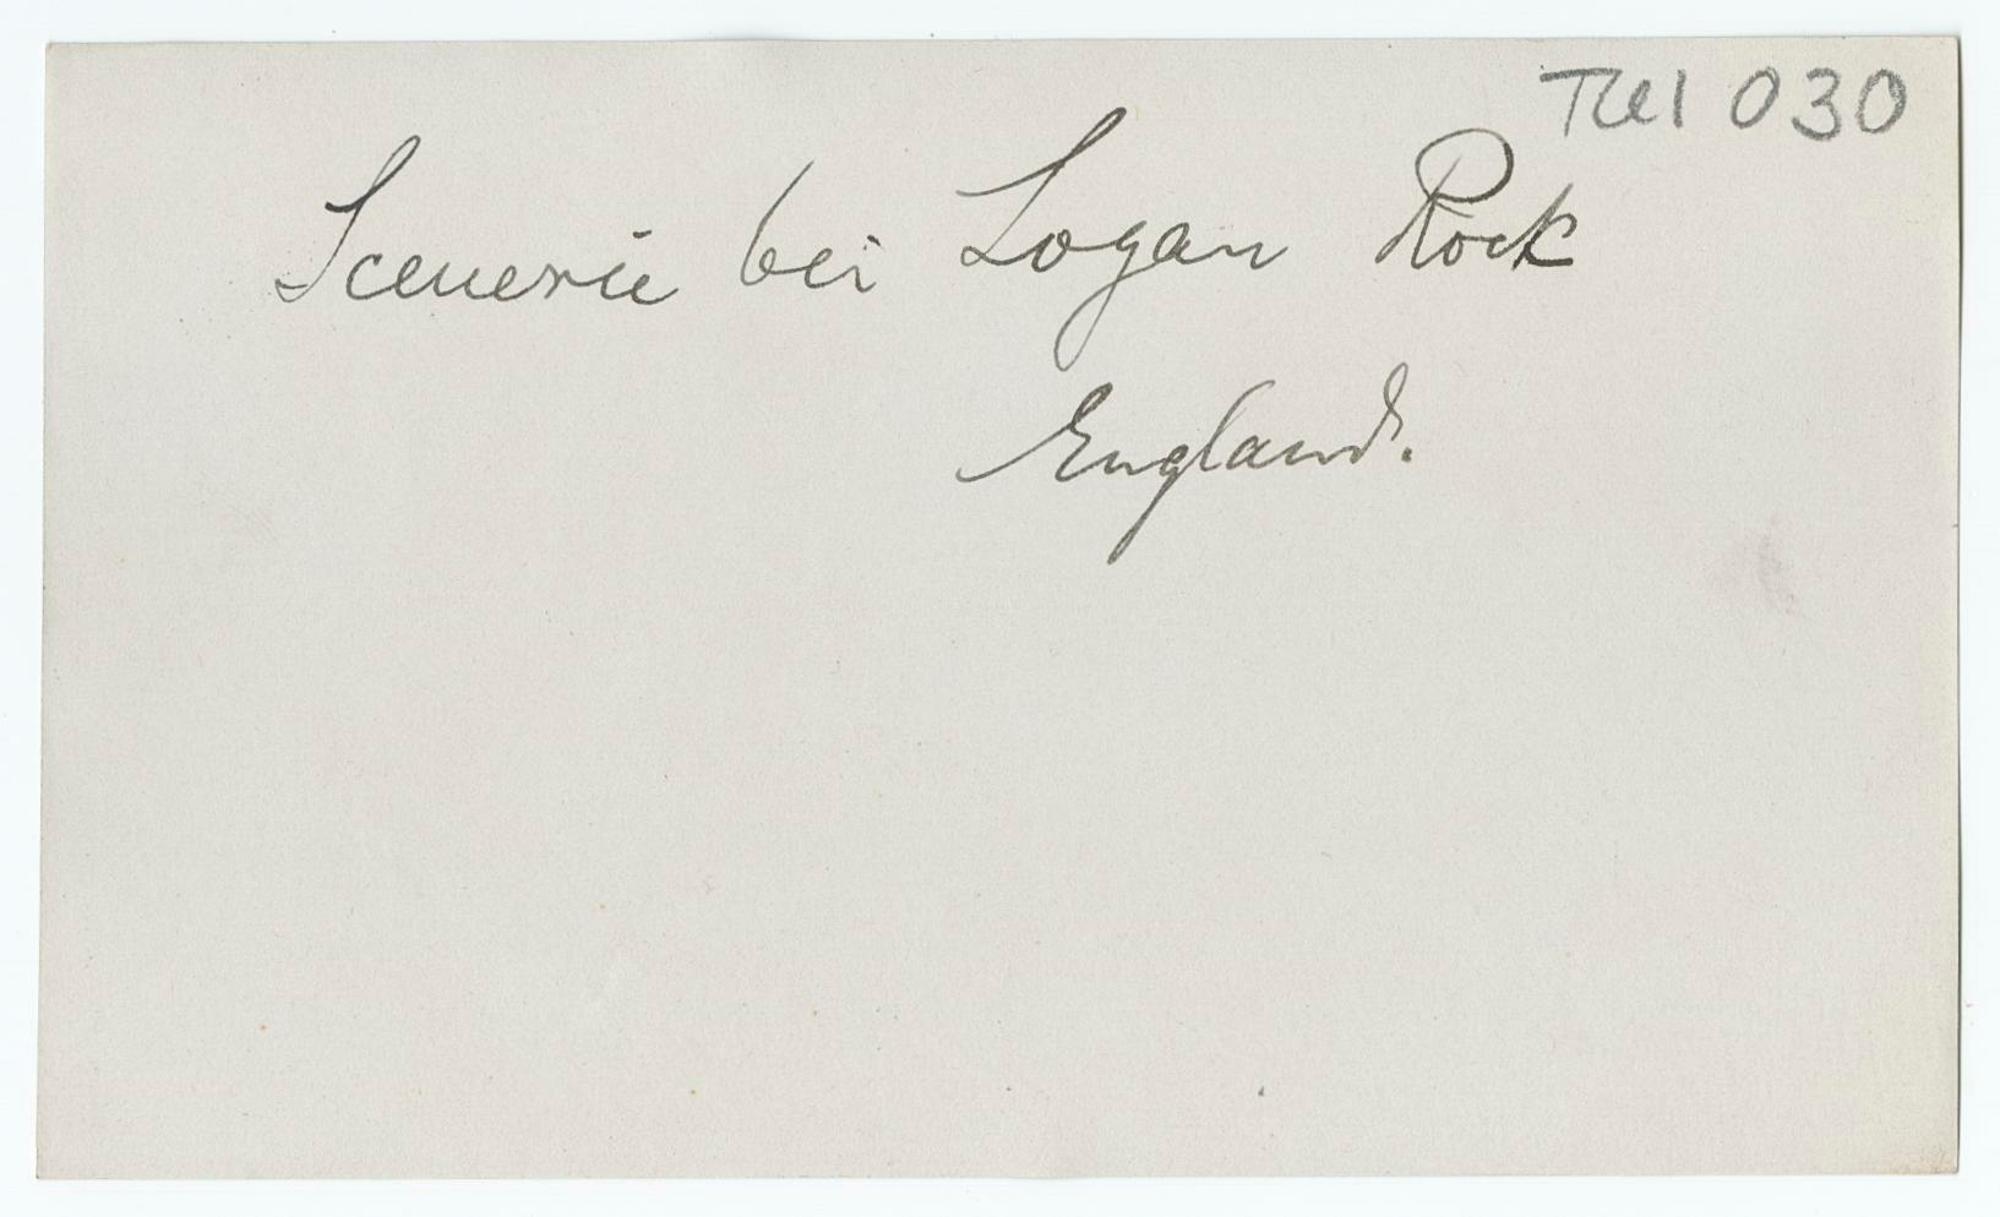 Tul 030
Scenerie bei Logan Rock
England.